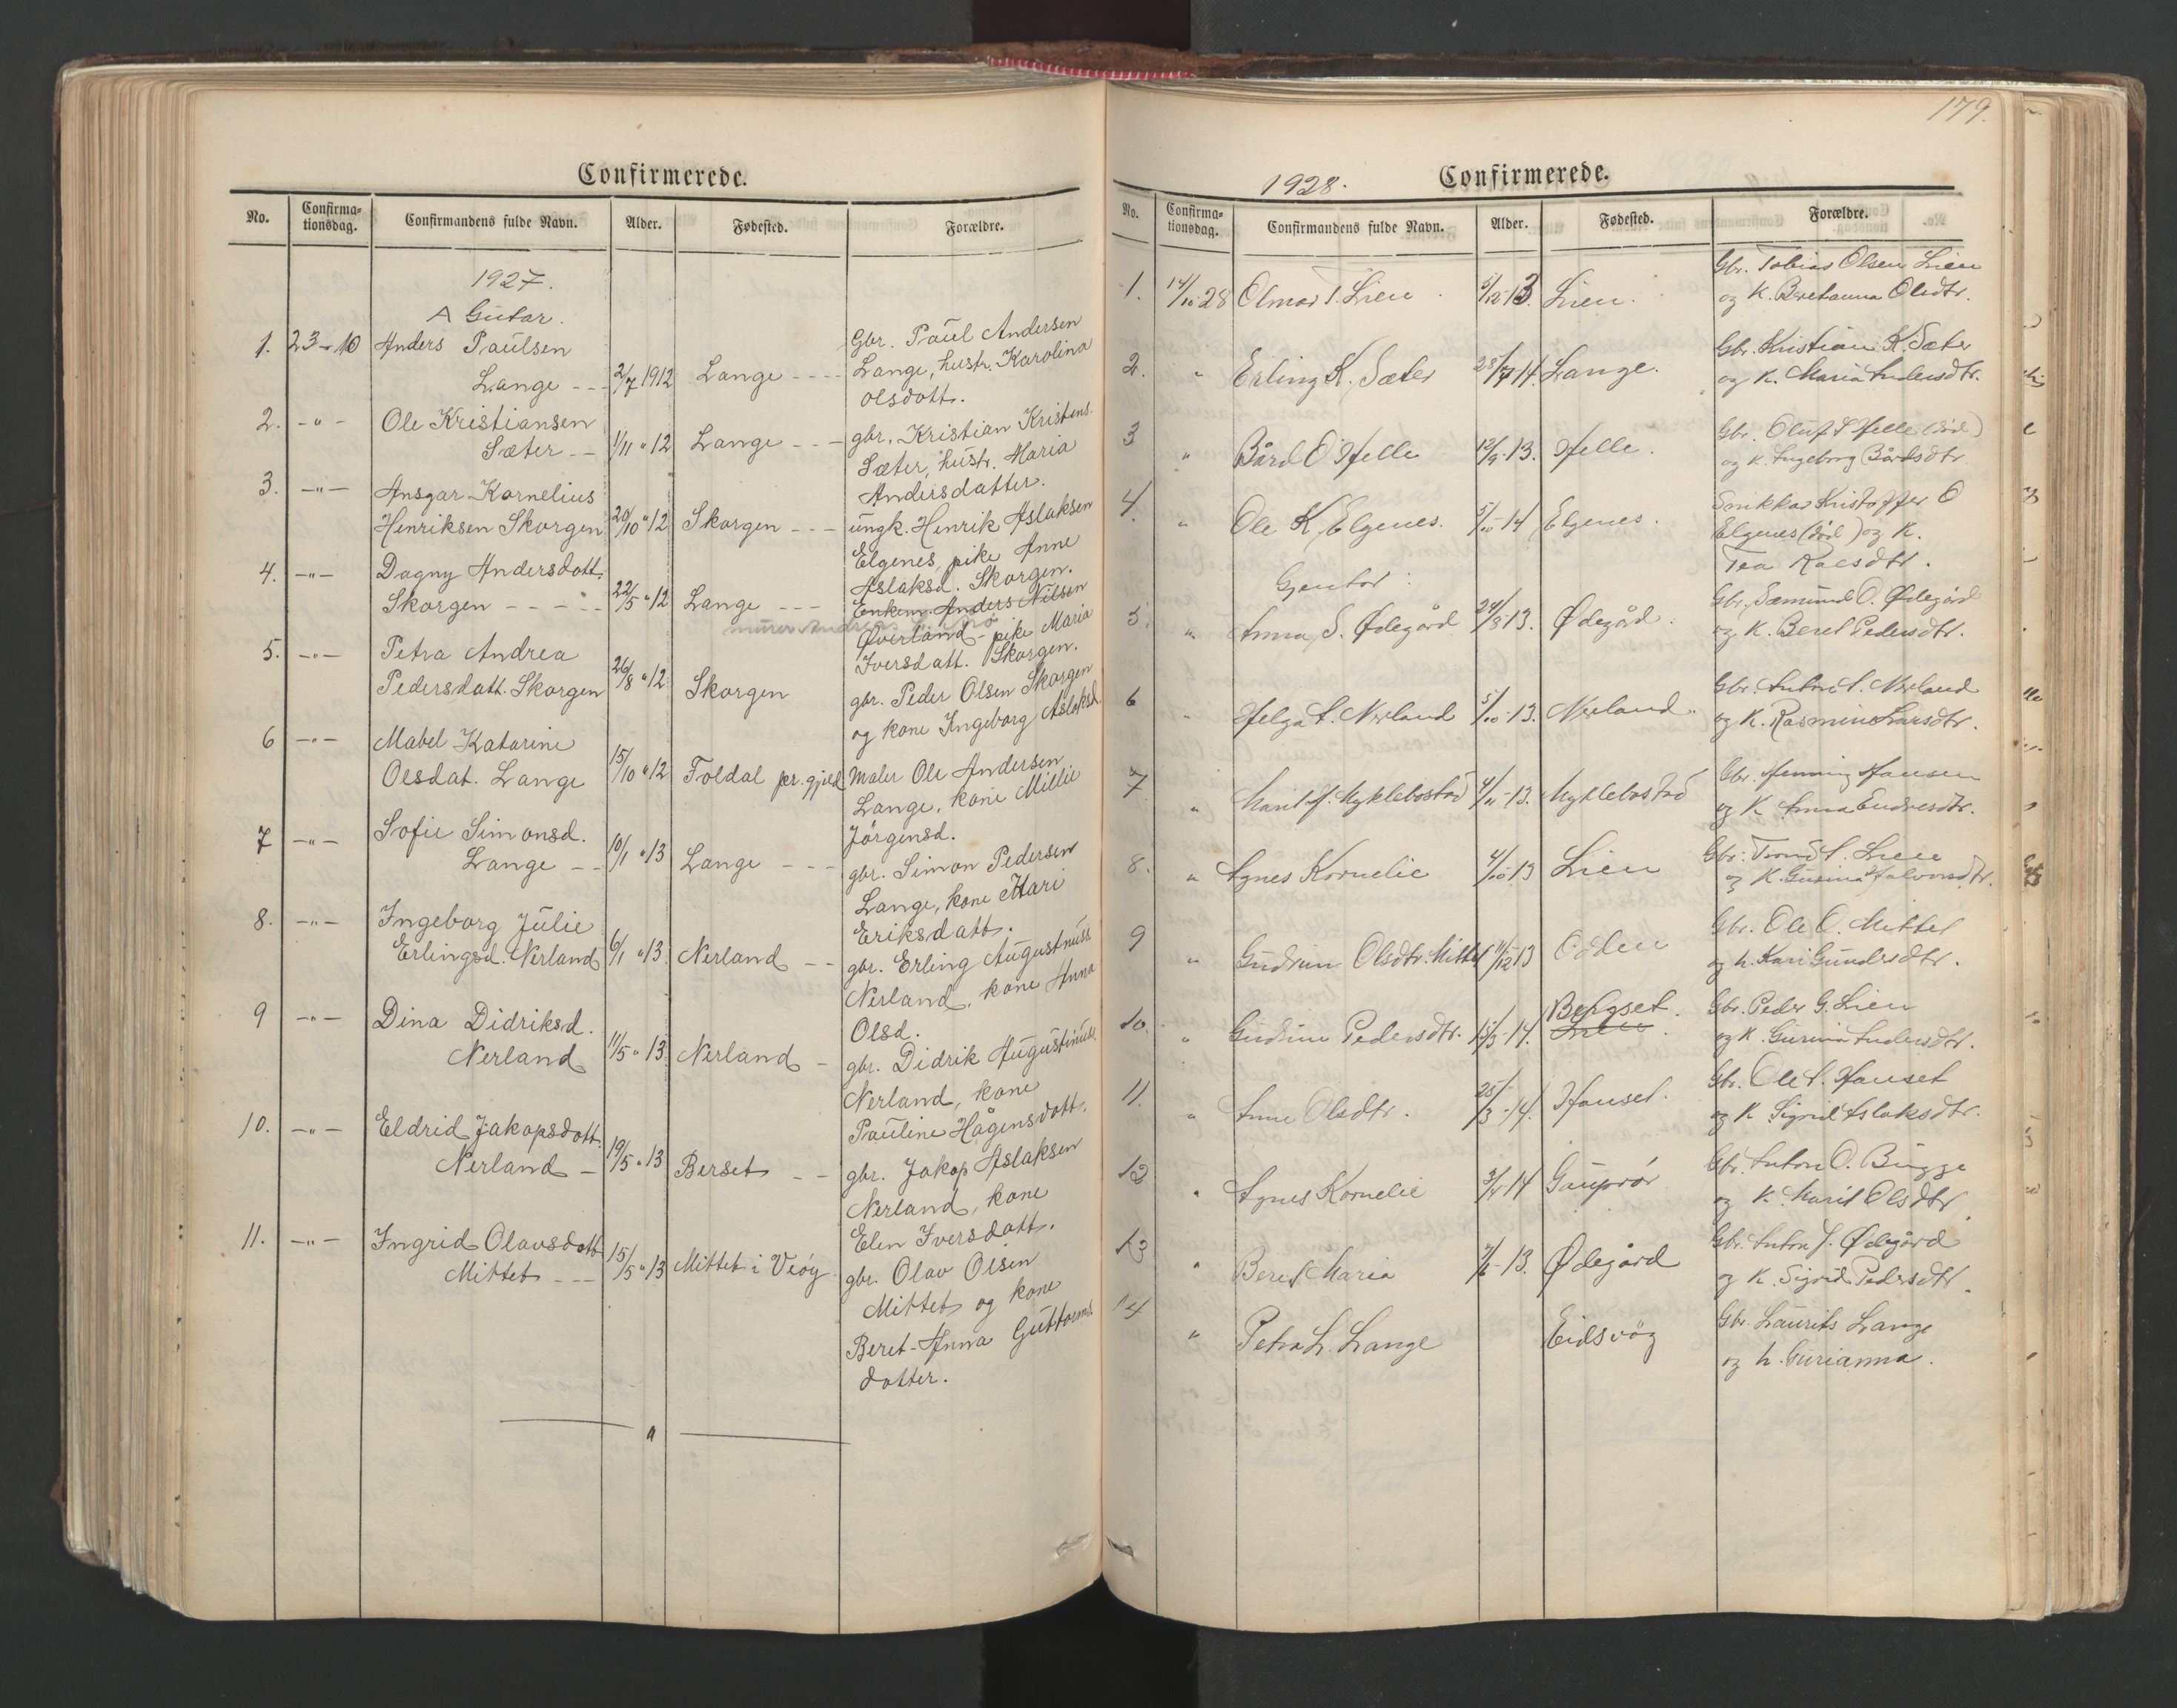 Confirmerede.
No. Confirma-tionsdag. Confirmandens fulde Navn. Alder. Fødested. Forældre.
1927.
A Gutar.
1. 23-10 Anders Paulsen Gbr. Paul Andersen
Lange - - 2/7 1912 Lange - - - Lange, hustr. Karolina
Olsdott.
2. -"- Ole Kristiansen gbr. Kristian Kristens.
Sæter - - 1/11 " 12 Lange - - - Sæter, hustr. Maria
Andersdatter.
3. -"- Ansgar Kornelius
Henriksen Skorgen 20/10 " 12 Skorgen - - - ungk. Henrik Aslaksen
Elgenes, pike Anne
Aslaksd. Skorgen.
4. -"- Dagny Andersdott.
Skorgen - - - - 22/5 " 12 Lange - - - Enkem. Anders Nilsen
murer Andreas
Øverland - pike Maria
Iversdatt. Skorgen.
5. -"- Petra Andrea
Pedersdatt. Skorgen 26/8 " 12 Skorgen gbr. Peder Olsen Skorgen
og kone Ingeborg Aslaksd.
6 -"- Mabel Katarine
Olsdat. Lange 15/10 " 12 Foldal pr.gjeld Maler Ole Andersen
Lange, kone Millie
Jörgensd.
7 -"- Sofie Simonsd.
Lange - - 10/1 " 13 Lange - - - gbr. Simon Pedersen
Lange, kone Mari
Eriksdatt.
8. -"- Ingeborg Julie
Erlingsd. Nerland 6/1 " 13 Nerland - - gbr. Erling Augustnuss.
Nerland, kone Anna
Olsd.
9 -"- Dina Didriksd.
Nerland 11/5 " 13 Nerland - gbr. Didrik Augustinuss.
Nerland, kone
Pauline Hågensdott.
10. -"- Eldrid Jakopsdott.
Nerland - 19/5 " 13 Berset - - gbr. Jakop Aslaksen
Nerland, kone
Elen Iversdatt.
11. -"- Ingrid Olavsdott
Mittet - - - 15/5 " 13 Mittet i Veöy gbr. Olav Olsen
Mittet og kone
Beret-Anna Guttorms
dotter.
179.
1928. Confirmerede.
No. Confirma-tionsdag. Confirmandens fulde Navn. Alder. Fødested. Forældre.
1. 14/10 28 Olmar T. Lien 5/12-13. Lien. Gbr. Tobias Olsen Lien
og K. Bretanna Olsdtr.
2. " Erling K. Sæter 28/7-14. Lange. Gbr. Kristian K. Sæter
og K. Maria Andersdtr.
3 " Bård O Helle 12/9-13. Helle. Gbr. Oluf S Helle (död)
og K. Ingeborg Bårdsdtr.
4. " Ole K. Elgenes. 5/10-14 Elgenes. Snikkar Kristoffer O
Elgenes (död) og K.
Tea
Gjentor:
5. " Anna S. Ødegård 24/8-13. Ødegård. Gbr. Sæmund O. Ødegård
og K. Beret Pedersdtr.
6 " Helga A. Nerland 5/10-13. Nerland. Gbr. Anton A. Nerland
og K. Rasmine Larsdtr.
7 " Marit H. Myklebostad 4/11-13. Myklebostad Gbr. Henning Hansen
og K Anna Endresdtr.
8. " Agnes Kornelie 4/10-13 Lien Gbr. Trond A. Lien
og K. Gurina Halvorsdtr.
9 " Gudrun Olsdtr. Mittet 11/12 13 Oden Gbr. Ole O. Mittet
og k. Kari Gundersdtr.
10. " Gudrun Pedersdtr. 15/3-14. Bergset. Lien. Gbr. Peder G. Lien
og K. Gurina Andersdtr.
11. " Anne Olsdtr. 25/3-14. Hauset. Gbr. Ole A. Hauset
og K Sigrid Aslaksdtr.
12 " Agnes Kornelie 3/4 14 Gauprör Gbr. Anton O. Bugge
og K. Marit Olsdtr.
13 " Beret Maria 7/6-13. Ødegård Gbr. Anton J. Ødegård
og K. Sigrid Pedersdtr.
14 " Petra L. Lange Eidsvög Gbr. Laurits Lange
og k. Gurianna.